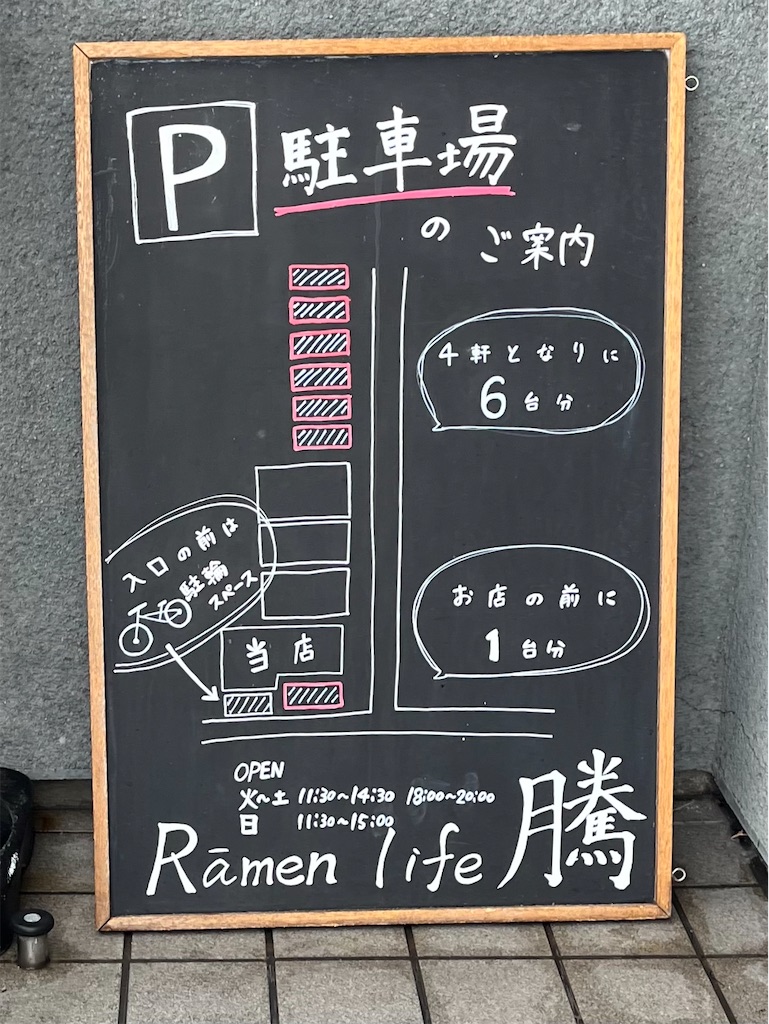 P 駐車場
の ご案内
4軒となりに
6台分
入口の前は
駐輪
スペース
お店の前に
1台分
当店
OPEN
火〜土 11:30〜14:30 18:00〜20:00
日 11:30〜15:00
Rāmen life 騰